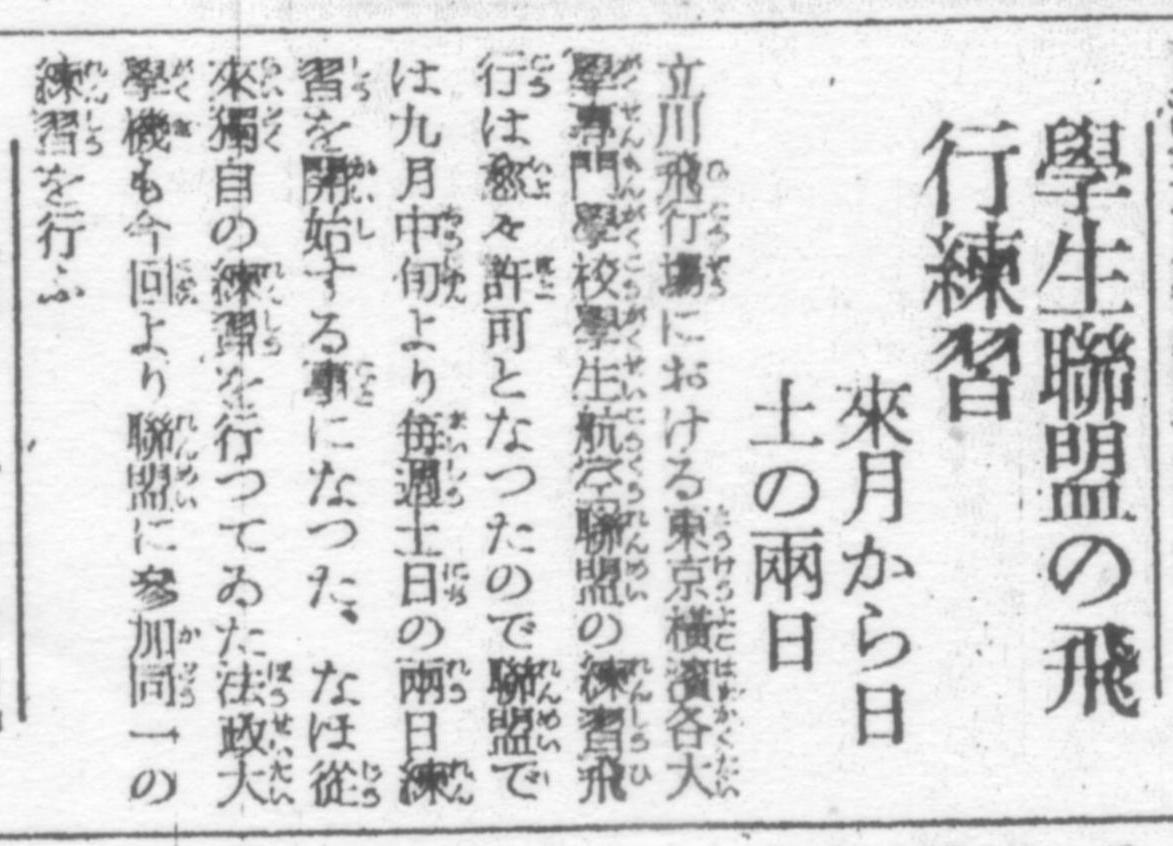 學生聯盟の飛
行練習
來月から日
土の兩日
立川飛行場における東京橫濱各大
學專門學校學生航空聯盟の練習飛
行は愈々許可となつたので聯盟で
は九月中旬より每週土日の兩日練
習を開始する事になつた、なほ從
來獨自の練習を行つてゐた法政大
學機も今回より聯盟に參加同一の
練習を行ふ